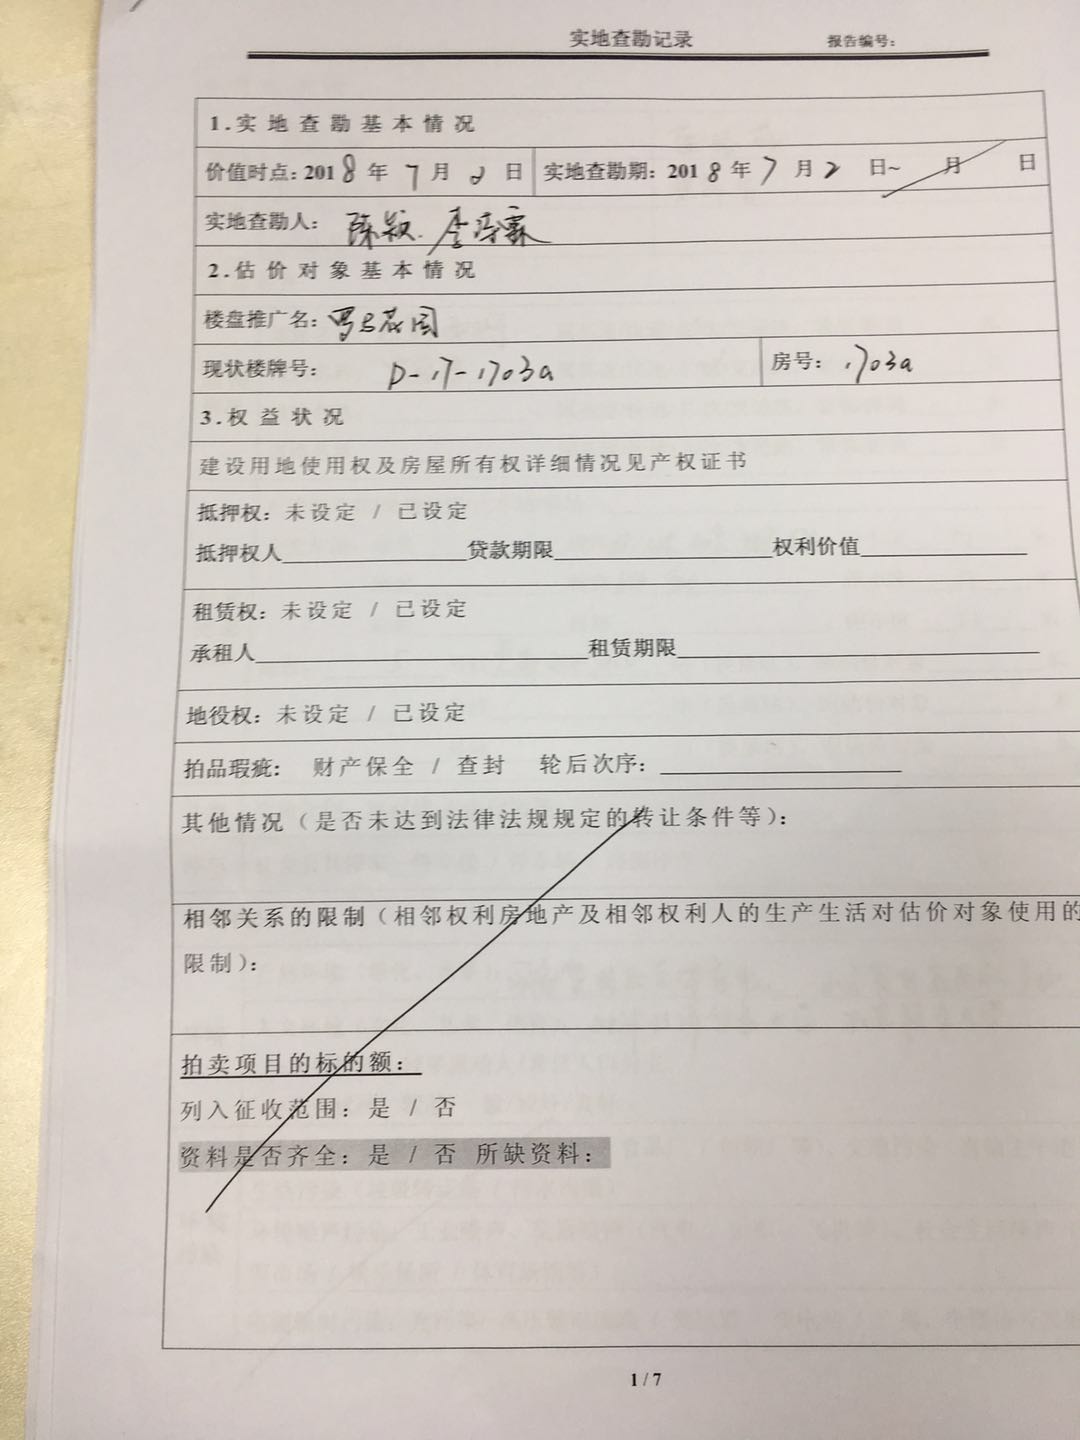 实地查勘记录 报告编号：
1.实地查勘基本情况
价值时点：2018年7月2日 实地查勘期：2018年7月2日~ 月 日
实地查勘人：陈颖.李
2.估价对象基本情况
楼盘推广名：罗马花园
现状楼牌号： D-17-1703a 房号：1703a
3.权益状况
建设用地使用权及房屋所有权详细情况见产权证书
抵押权：未设定 / 已设定
抵押权人 贷款期限 权利价值
租赁权：未设定 / 已设定
承租人 租赁期限
地役权：未设定 / 已设定
拍品瑕疵： 财产保全 / 查封 轮后次序：
其他情况（是否未达到法律法规规定的转让条件等）：
相邻关系的限制（相邻权利房地产及相邻权利人的生产生活对估价对象使用的
限制）：
拍卖项目的标的额：
列入征收范围：是 / 否
资料是否齐全：是 / 否 所缺资料：
1 / 7